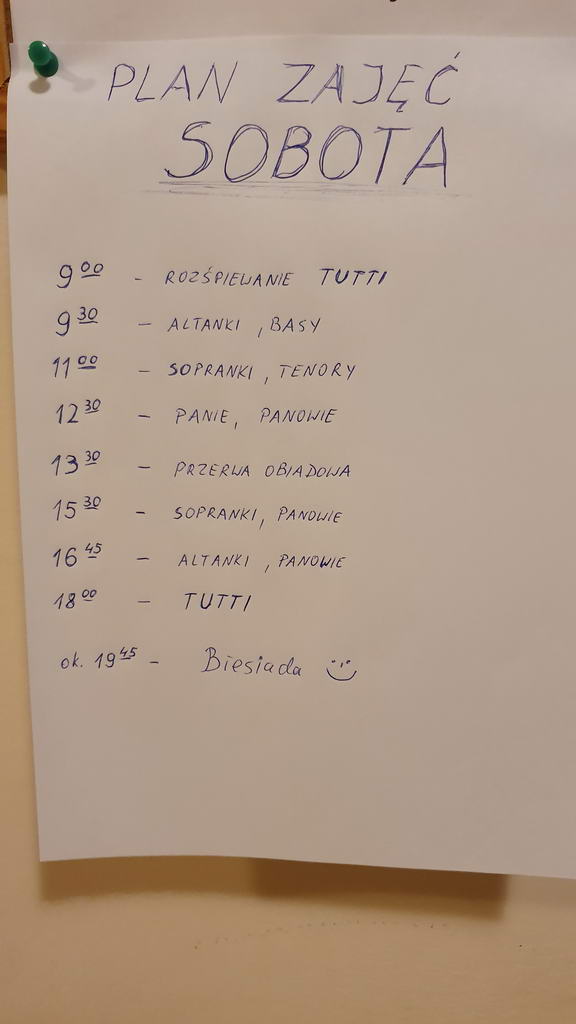 PLAN ZAJĘĆ
SOBOTA
9 00 - ROZŚPIEWANIE TUTTI
9 30 - ALTANKI , BASY
11 00 - SOPRANKI , TENORY
12 30 - PANIE, PANOWIE
13 30 - PRZERWA OBIADOWA
15 30 - SOPRANKI, PANOWIE
16 45 - ALTANKI , PANOWIE
18 00 - TUTTI
ok. 19 45 - Biesiada